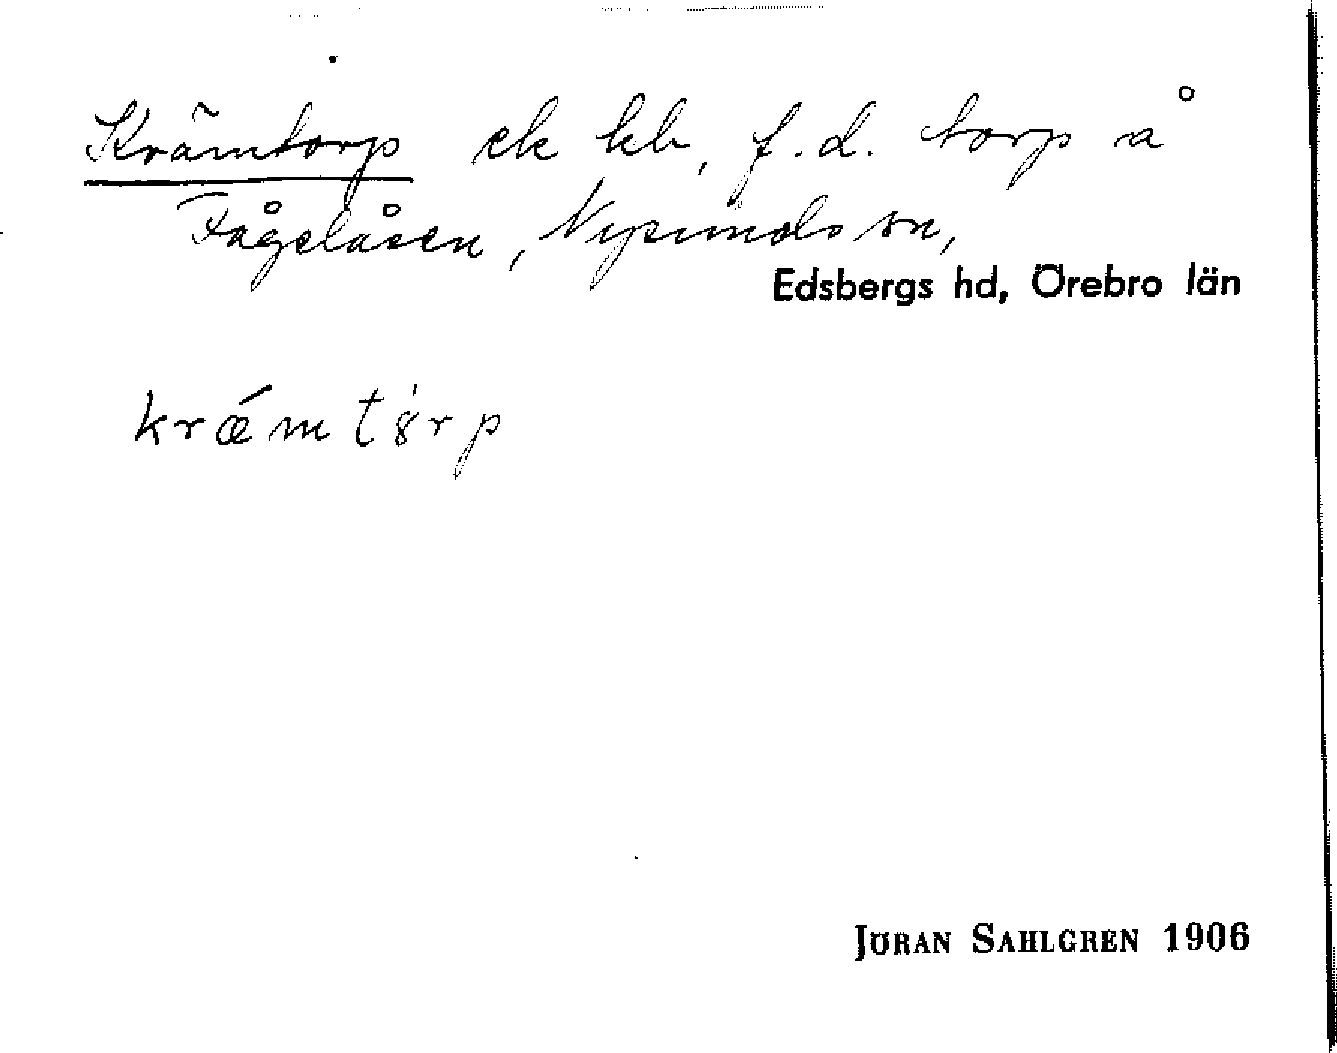 Krämtorp ek kb, f.d. torp å
Fågelåsen, Nysunds sn,
Edsbergs hd, Örebro län
krǽmtȣ́rp
JÖRAN SAHLGREN 1906